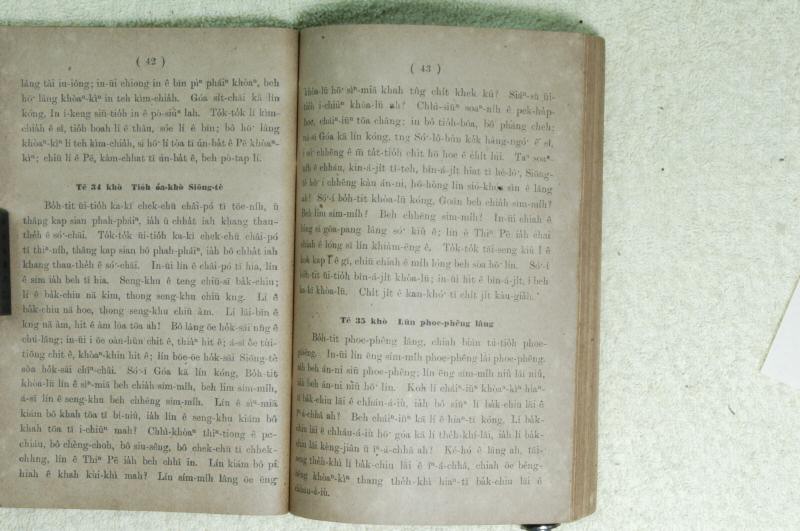 ( 42 )
lâng tài iu-iông; in-ūi chiong-in ê bīn pìⁿ pháiⁿ khòaⁿ, beh
hō͘ lâng khòaⁿ-kìⁿ in teh kìm-chia̍h. Góa si̍t-chāi kā lín
kóng, In í-keng siū-tio̍h in ê pò-siúⁿ lah. To̍k-to̍k lí kìm-
chia̍h ê sî, tio̍h boah lí ê thâu, sóe lí ê bīn; bô hō͘ lâng
khòaⁿ-kìⁿ lí teh kìm-chia̍h, sī hō͘ lí tòa tī ún-ba̍t ê Pē khòaⁿ-
kìⁿ; chiū lí ê Pē, kàm-chhat tī ún-ba̍t ê, beh pò-tap lí.
Tē 34 khò Tio̍h óa-khò Siōng-tè
Bo̍h-tit ūi-tio̍h ka-kī chek-chū châi-pó tī tōe-nih, ū
thâng kap sian phah-pháiⁿ, ia̍h ū chha̍t iah khang thau-
the̍h ê só͘-chāi. To̍k-to̍k ūi-tio̍h ka-kī chek-chū châi-pó
tī thiⁿ-nih, thâng kap sian bô phah-pháiⁿ, ia̍h bô chha̍t iah
khang thau-the̍h ê só͘-chāi. In-ūi lín ê châi-pó tī hia, lín
ê sim ia̍h beh tī hia. Seng-khu ê teng chiū-sī ba̍k-chiu;
lí ê ba̍k-chiu nā kim, thong seng-khu chiū kng. Lí ê
ba̍k-chiu nā hoe, thong seng-khu chiū àm. Lí lāi-bīn ê
kng nā àm, hit ê àm lóa tōa ah! Bô lâng ōe ho̍k-sāi nn̄g ê
chú-lâng; in-ūi i ōe oàn-hūn chit ê, thiàⁿ hit ê; á-sī ōe tùi-
tiōng chit ê, khòaⁿ-khin hit ê; lín bōe-ōe ho̍k-sāi Siōng-tè
sòa ho̍k-sāi chîⁿ-châi. Só͘-í Góa kā lín kóng, Bo̍h-tit
khòa-lū lín ê sìⁿ-miā beh chia̍h sím-mi̍h, beh lim sím-mi̍h,
á-sī lín ê seng-khu beh chhēng sím-mi̍h. Lín ê sìⁿ-miā
kiám bô khah tōa tī bí-niû, ia̍h lín ê seng-khu kiám bô
khah tōa tī i-chiûⁿ mah? Chhù-khòaⁿ thiⁿ-tiong ê pe-
chiáu, bô chèng-choh, bô siu-sêng, bô chek-chū tī chhek-
chhng, lín ê Thiⁿ Pē ia̍h beh chhī in. Lín kiám bô pí
hiah ê khah kùi-khì mah? Lín sím-mi̍h lâng ōe ēng
( 43 )
khòa-lū hō͘ sìⁿ-miā khah tn̂g chi̍t khek kú? Siáⁿ-sū ūi-
tio̍h i-chiûⁿ khòa-lū ah? Chhì-siūⁿ soaⁿ-nih ê pek-ha̍p-
hoe, cháiⁿ-iūⁿ tōa châng; in bô tio̍h-bôa, bô pháng cheh;
ná-sī Góa kā lín kóng, tng Só͘-lô-bûn kek hàng-ngó͘ ê sî,
i só͘-chhēng ê m̄ ta̍t-tio̍h chit hō hoe ê chi̍t lúi. Taⁿ soaⁿ-
nih ê chháu, kin-á-ji̍t tī-teh, bîn-á-ji̍t hiat tī hé-lô͘, Siōng-
tè hō͘ i chhēng kàu án-ni, hô-hòng lín sió-khóa sìn ê lâng
ah? Só͘-í bo̍h-tit khòa-lū kóng, Goán beh chia̍h sím-mi̍h?
Beh lim sím-mi̍h? Beh chhēng sím-mi̍h? In-ūi chiah ê
lóng sī góa-pang lâng só͘ kiû ê; lín ê Thiⁿ Pē ia̍h chai
chiah ê lóng sī lín khiàm-ēng ê. To̍k-to̍k tāi-seng kiû I ê
kok kap I ê gī, chiū chiah ê mi̍h lóng beh sòa hō͘ lín. Só͘-í
bo̍h-tit ūi-tio̍h bîn-á-ji̍t khòa-lū; in-ūi hit ê bîn-á-ji̍t, i beh
ka-kī khòa-lū. Chi̍t ji̍t ê kan-khó͘ tī chi̍t ji̍t kàu-gia̍h.
Tē 35 khò Lūn phoe-phêng lâng
Bo̍h-tit phoe-phêng lâng, chiah bián tú-tio̍h phoe-
phêng. In-ūi lín ēng sím-mi̍h phoe-phêng lâi phoe-phêng,
ia̍h beh án-ni siū phoe-phêng; lín ēng sím-mi̍h niû lâi niû,
ia̍h beh án-ni niû hō͘ lín. Koh lí cháiⁿ-iūⁿ khòaⁿ-kìⁿ hiaⁿ-
tī ba̍k-chiu lāi ê chháu-á-iù, ia̍h bô siūⁿ lí ba̍k-chiu lāi ê
îⁿ-á-chhâ ah? Beh cháiⁿ-iūⁿ kā lí ê hiaⁿ-tī kóng, Lí ba̍k-
chiu lāi ê chháu-á-iù hō͘ góa kā lí the̍h-khí-lâi, ia̍h lí ba̍k-
chiu lāi kèng-jiân ū îⁿ-á-chhâ ah? Ké-hó ê lâng ah, tāi-
seng the̍h-khì lí ba̍k-chiu lāi ê îⁿ-á-chhâ, chiah ōe bêng-
bêng khòaⁿ-kìⁿ thang the̍h-khì hiaⁿ-tī ba̍k-chiu lāi ê
chháu-á-iù.